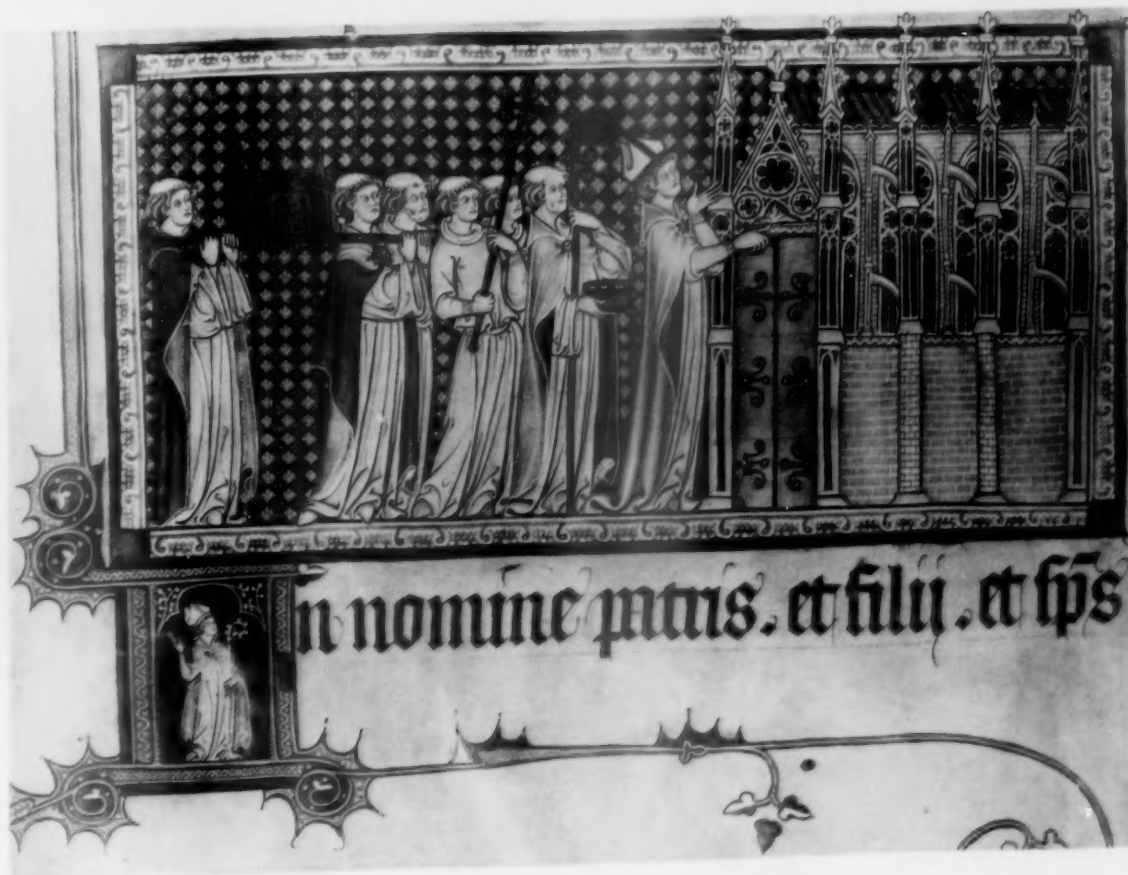 In nomine patris. et filij. et sp̄s